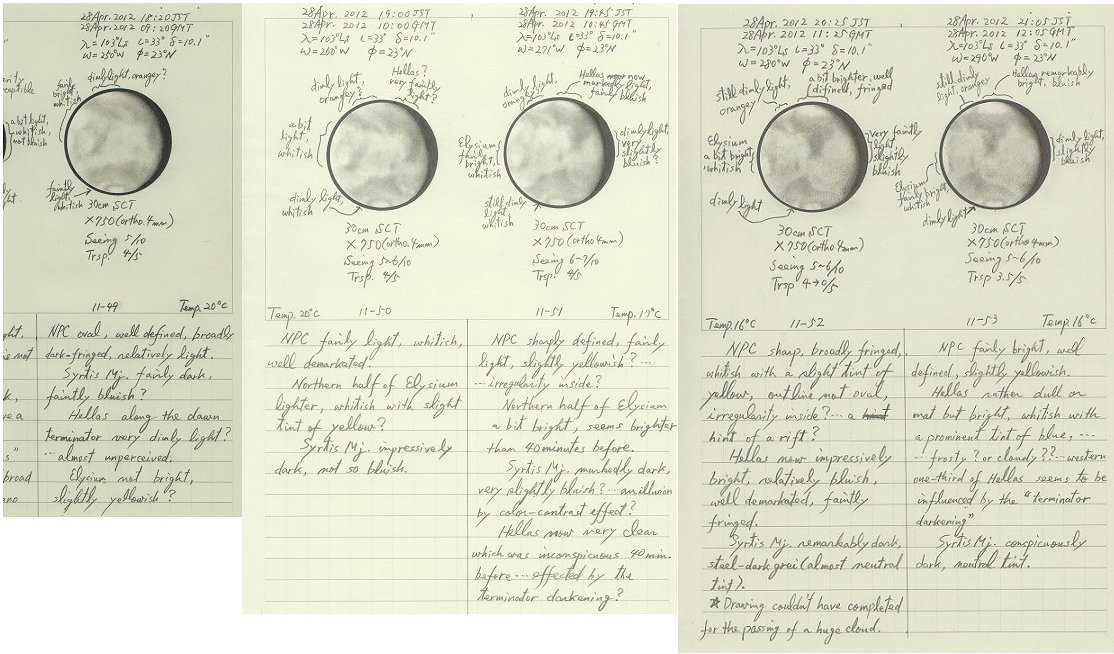 28 Apr. 2012 18:20 JST
28 Apr. 2012 09:20 GMT
λ=103°Ls ι=33" δ=10.1"
ω=250°W φ=23°N
dimly light, orangey?
fairly
bright,
whitish
a bit light,
whitish,
not bluish
faintly
light,
whitish
30cm SCT
×750 (ortho. 4mm)
Seeing 5/10
Trsp. 4/5
11-49 Temp. 20°C
NPC oval, well defined, broadly
dark-fringed, relatively light.
Syrtis Mj. fairly dark,
faintly bluish?
Hellas along the dawn
terminator very dimly light?
... almost unperceived.
Elysium not bright,
slightly yellowish?
28 Apr. 2012 19:00 JST
28 Apr. 2012 10:00 GMT
λ=103°Ls ι=33° δ=10.1"
ω=260°W φ=23°N
dimly light,
orangey?
Hellas?
very faintly
light?
a bit
light,
whitish
dimly light,
whitish
30cm SCT
×750 (ortho 4mm)
Seeing 5~6/10
Trsp. 4/5
Temp. 20°C 11-50
NPC fairly light, whitish,
well demarkated.
Northern half of Elysium
lighter, whitish with slight
tint of yellow?
Syrtis Mj. impressively
dark, not so bluish.
28 Apr. 2012 19:45 JST
28 Apr. 2012 10:45 GMT
λ=103°Ls ι=33° δ=10.1"
ω=271°W φ=23°N
dimly light,
orangey
Hellas now
markedly light,
fairly bluish
Elysium
fairly
bright,
whitish
dimly light,
very
slightly
bluish?
still dimly
light
whitish
30cm SCT
×750 (ortho 4mm)
Seeing 6~7/10
Trsp. 4/5
11-51 Temp. 17°C
NPC sharply defined, fairly
light, slightly yellowish? ....
... irregularity inside?
Northern half of Elysium
a bit bright, seems brighter
than 40 minutes before.
Syrtis Mj. markedly dark,
very slightly bluish? ... an illusion
by color-contrast effect?
Hellas now very clear
which was inconspicuous 40 min.
before ... effected by the
terminator darkening?
28 Apr. 2012 20:25 JST
28 Apr. 2012 11:25 GMT
λ=103°Ls ι=33° δ=10.1"
ω=280°W φ=23°N
still dimly light,
orangey
a bit brighter, well
difined, fringed
Elysium
a bit bright,
whitish
very faintly
light
slightly
bluish
dimly light
30cm SCT
×750 (ortho 4mm)
Seeing 5~6/10
Trsp 4→0/5
Temp. 16°C 11-52
NPC sharp, broadly fringed,
whitish with a slight tint of
yellow, outline not oval,
irregularity inside? ... a
hint of a rift?
Hellas now impressively
bright, relatively bluish,
well demarkated, faintly
fringed.
Syrtis Mj. remarkably dark,
steel-dark grei (almost neutral
tint).
★ Drawing couldn't have completed
for the passing of a huge cloud.
28 Apr. 2012 21:05 JST
28 Apr. 2012 12:05 GMT
λ=103°Ls ι=33° δ=10.1"
ω=290°W φ=23°N
still dimly
light, orangey
Hellas remarkably
bright, bluish
dimly light,
slightly
bluish
Elysium
fairly bright,
whitish
dimly light
30cm SCT
×750 (ortho 4mm)
Seeing 5~6/10
Trsp 3.5/5
11-53 Temp. 16°C
NPC fairly bright, well
defined, slightly yellowish.
Hellas rather dull or
mat but bright, whitish with
a prominent tint of blue, ...
... frosty? or cloudy?? ... western
one-third of Hellas seems to be
influenced by the "terminator
darkening"
Syrtis Mj. conspicuously
dark, neutral tint.